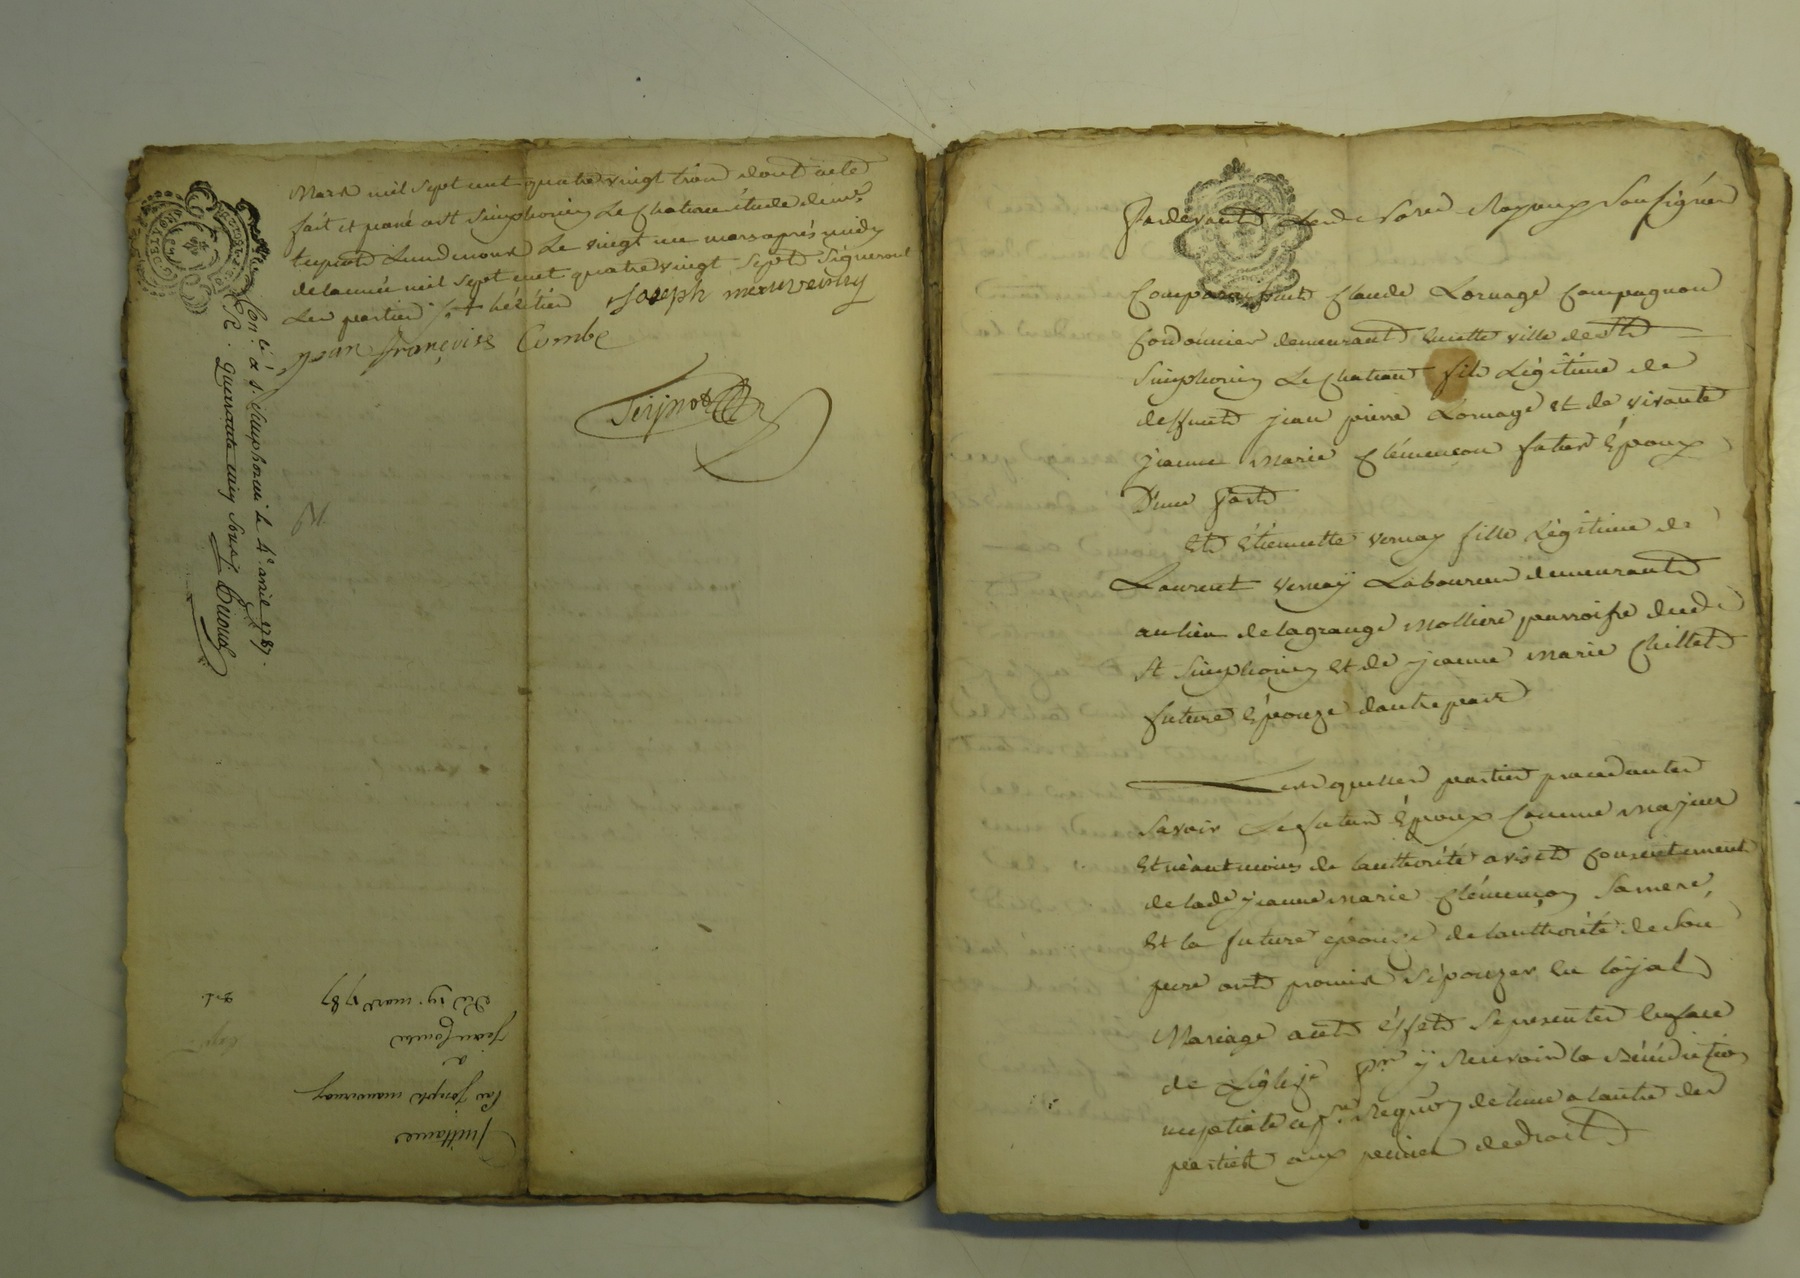 Mars mil sept cent quatre vingt trois dont acte
fait et passé a st Simphorien Le Chateau étude de me
de lannée mil sept cent quatre vingt Sept Signeront
Les parties
jean françoise Combe
Con.lé a st Simphorien le 4e avril 1787.
R. quarante cinq sous
Quittance
Par Joseph
à
jean Combe
Du 19. mars 1787
Pardevant Les No.res Royaux Sousignés
Comparu furent Claude Lornage Compagnon
Cordonnier demeurant en cette ville de st
Simphorien Le Chateau fils Légitime de
deffunt jean pierre Lornage et de vivante
jeanne Marie Clémençon futur Epoux
D'une Part
Et Etiennette Vernay fille Légitime de
Laurent Vernaÿ Laboureur demeurant
au lieu de lagrange Molliere parroisse dud.
St Simphorien Et de jeanne Marie Chillet
future Epouze dautre part
Les quelles parties procedantes
Savoir Le futur Epoux Comme Majeur
Et néantmoins de lauthorité avis et Consentement
de lade jeanne Marie Clémençon Sa mere,
Et la future epouse de lauthorité de Son
pere ont promis S'épouzer En loÿal
Mariage a cet Effet Se presenter En face
de L'église Pr. ÿ Recevoir la Bénédiction
nuptiale a pre Requion de lune a lautre des
parties aux peines de droit